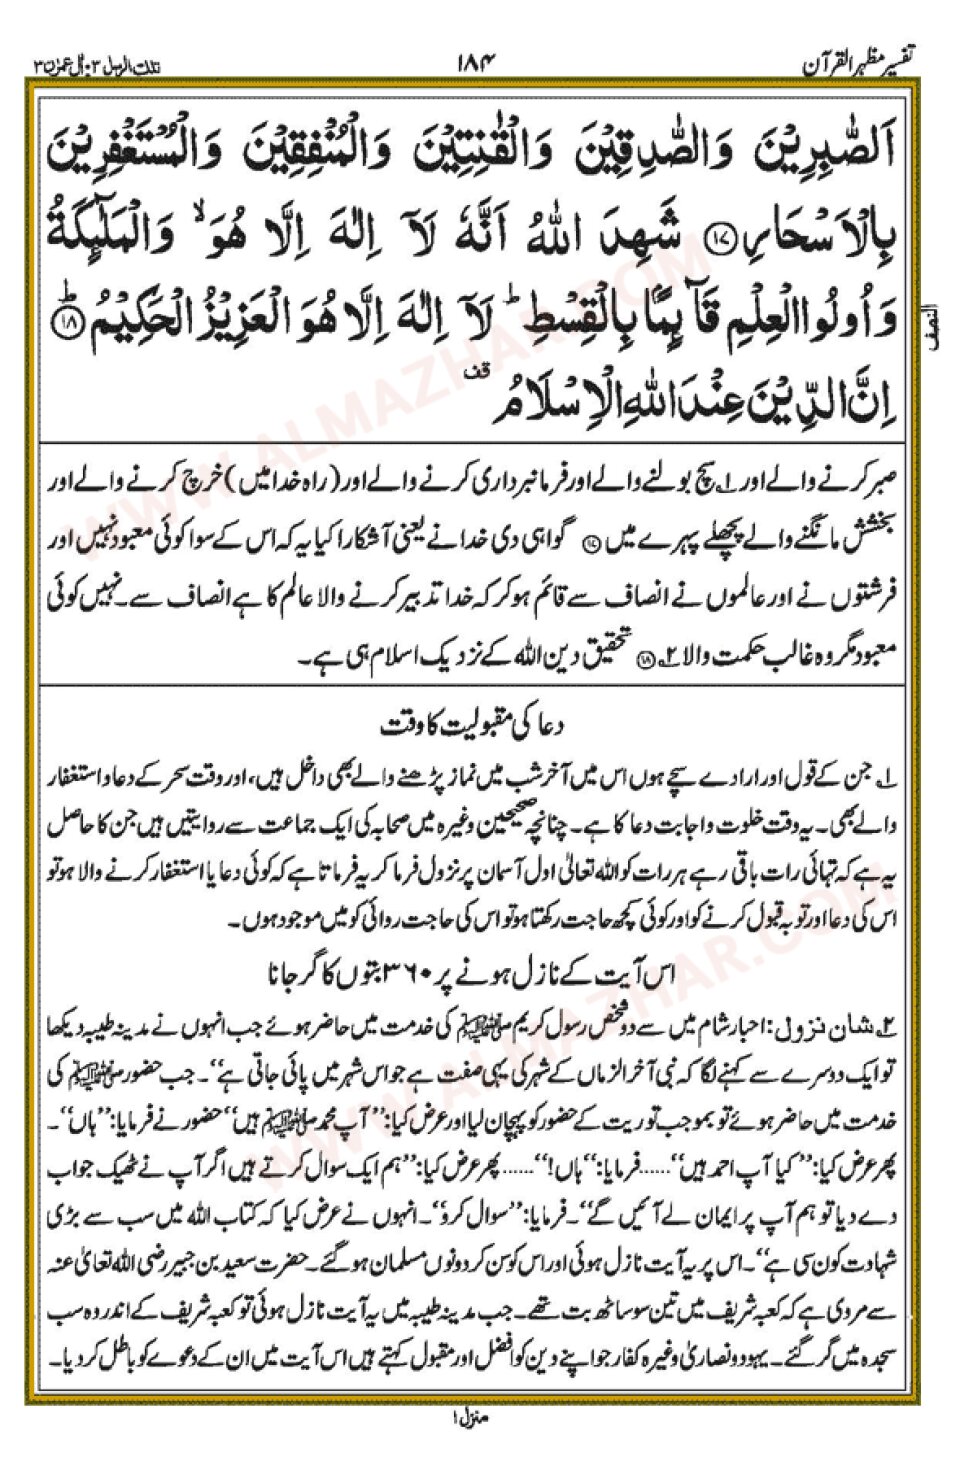 تفسیر مظہر القرآن
۱۸۴
تلک الرسل ۳ · اٰل عمرٰن ۳
اَلصّٰبِرِيْنَ وَالصّٰدِقِيْنَ وَالْقٰنِتِيْنَ وَالْمُنْفِقِيْنَ وَالْمُسْتَغْفِرِيْنَ
بِالْاَسْحَارِ ﴿۱۷﴾ شَهِدَ اللّٰهُ اَنَّهٗ لَاۤ اِلٰهَ اِلَّا هُوَ ۙ وَالْمَلٰٓئِكَةُ
وَاُولُوا الْعِلْمِ قَآئِمًۢا بِالْقِسْطِ ؕ لَاۤ اِلٰهَ اِلَّا هُوَ الْعَزِيْزُ الْحَكِيْمُ ﴿۱۸﴾ ؕ
اِنَّ الدِّيْنَ عِنْدَ اللّٰهِ الْاِسْلَامُ قف
النصف
صبر کرنے والے اور ۱؎ سچ بولنے والے اور فرمانبرداری کرنے والے اور (راہ خدا میں) خرچ کرنے والے اور
بخشش مانگنے والے پچھلے پہرے میں ﴿۱۷﴾ گواہی دی خدا نے یعنی آشکارا کیا یہ کہ اس کے سوا کوئی معبود نہیں اور
فرشتوں نے اور عالموں نے انصاف سے قائم ہو کر کہ خدا تدبیر کرنے والا عالم کا ہے انصاف سے۔ نہیں کوئی
معبود مگر وہ غالب حکمت والا ۲؎ ﴿۱۸﴾ تحقیق دین اللہ کے نزدیک اسلام ہی ہے۔
دعا کی مقبولیت کا وقت
۱؎ جن کے قول اور ارادے سچے ہوں اس میں آخر شب میں نماز پڑھنے والے بھی داخل ہیں، اور وقت سحر کے دعا و استغفار
والے بھی۔ یہ وقت خلوت و اجابت دعا کا ہے۔ چنانچہ صحیحین وغیرہ میں صحابہ کی ایک جماعت سے روایتیں ہیں جن کا حاصل
یہ ہے کہ تہائی رات باقی رہے ہر رات کو اللہ تعالیٰ اول آسمان پر نزول فرما کر یہ فرماتا ہے کہ کوئی دعا یا استغفار کرنے والا ہو تو
اس کی دعا اور توبہ قبول کرنے کو اور کوئی کچھ حاجت رکھتا ہو تو اس کی حاجت روائی کو میں موجود ہوں۔
اس آیت کے نازل ہونے پر ۳۶۰ بتوں کا گر جانا
۲؎ شان نزول: احبار شام میں سے دو شخص رسول کریم ﷺ کی خدمت میں حاضر ہوئے جب انہوں نے مدینہ طیبہ دیکھا
تو ایک دوسرے سے کہنے لگا کہ نبی آخر الزماں کے شہر کی یہی صفت ہے جو اس شہر میں پائی جاتی ہے“۔ جب حضور ﷺ کی
خدمت میں حاضر ہوئے تو بموجب توریت کے حضور کو پہچان لیا اور عرض کیا: ”آپ محمد ﷺ ہیں“ حضور نے فرمایا: ”ہاں“۔
پھر عرض کیا: ”کیا آپ احمد ہیں“...... فرمایا: ”ہاں!“...... پھر عرض کیا: ”ہم ایک سوال کرتے ہیں اگر آپ نے ٹھیک جواب
دے دیا تو ہم آپ پر ایمان لے آئیں گے“۔ فرمایا: ”سوال کرو“۔ انہوں نے عرض کیا کہ کتاب اللہ میں سب سے بڑی
شہادت کون سی ہے“۔ اس پر یہ آیت نازل ہوئی اور اس کو سن کر دونوں مسلمان ہو گئے۔ حضرت سعید بن جبیر رضی اللہ تعالیٰ عنہ
سے مروی ہے کہ کعبہ شریف میں تین سو ساٹھ بت تھے۔ جب مدینہ طیبہ میں یہ آیت نازل ہوئی تو کعبہ شریف کے اندر وہ سب
سجدہ میں گر گئے۔ یہود و نصاریٰ وغیرہ کفار جو اپنے دین کو افضل اور مقبول کہتے ہیں اس آیت میں ان کے دعوے کو باطل کر دیا۔
منزل ۱
WWW.ALMAZHAR.COM
WWW.ALMAZHAR.COM